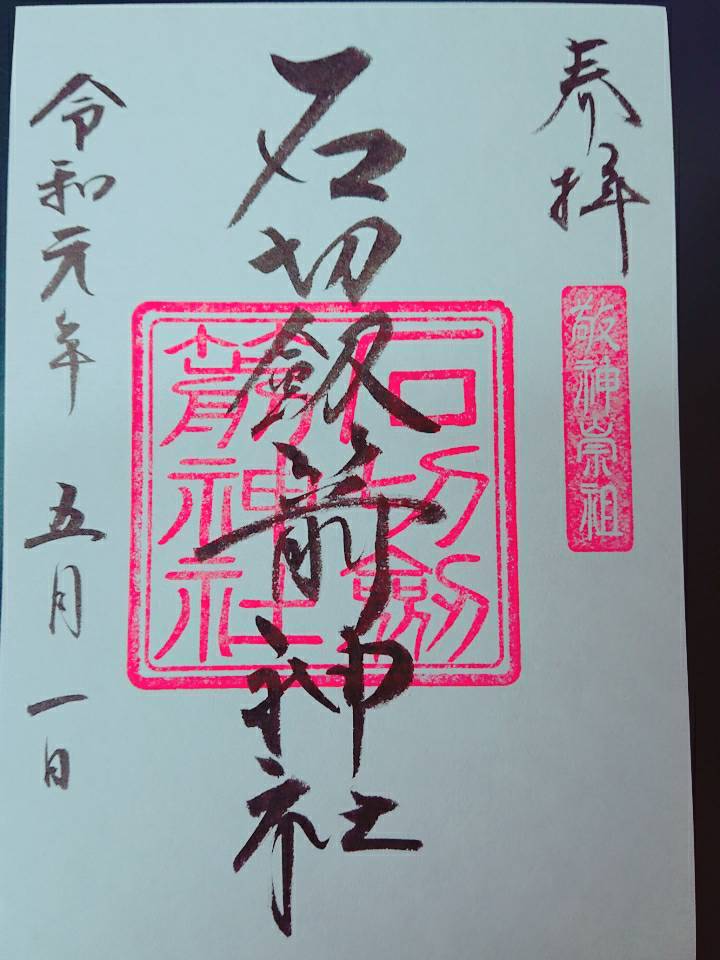 奉拝
敬神崇祖
石切劔箭神社
石切劔
箭神社
令和元年 五月 一日